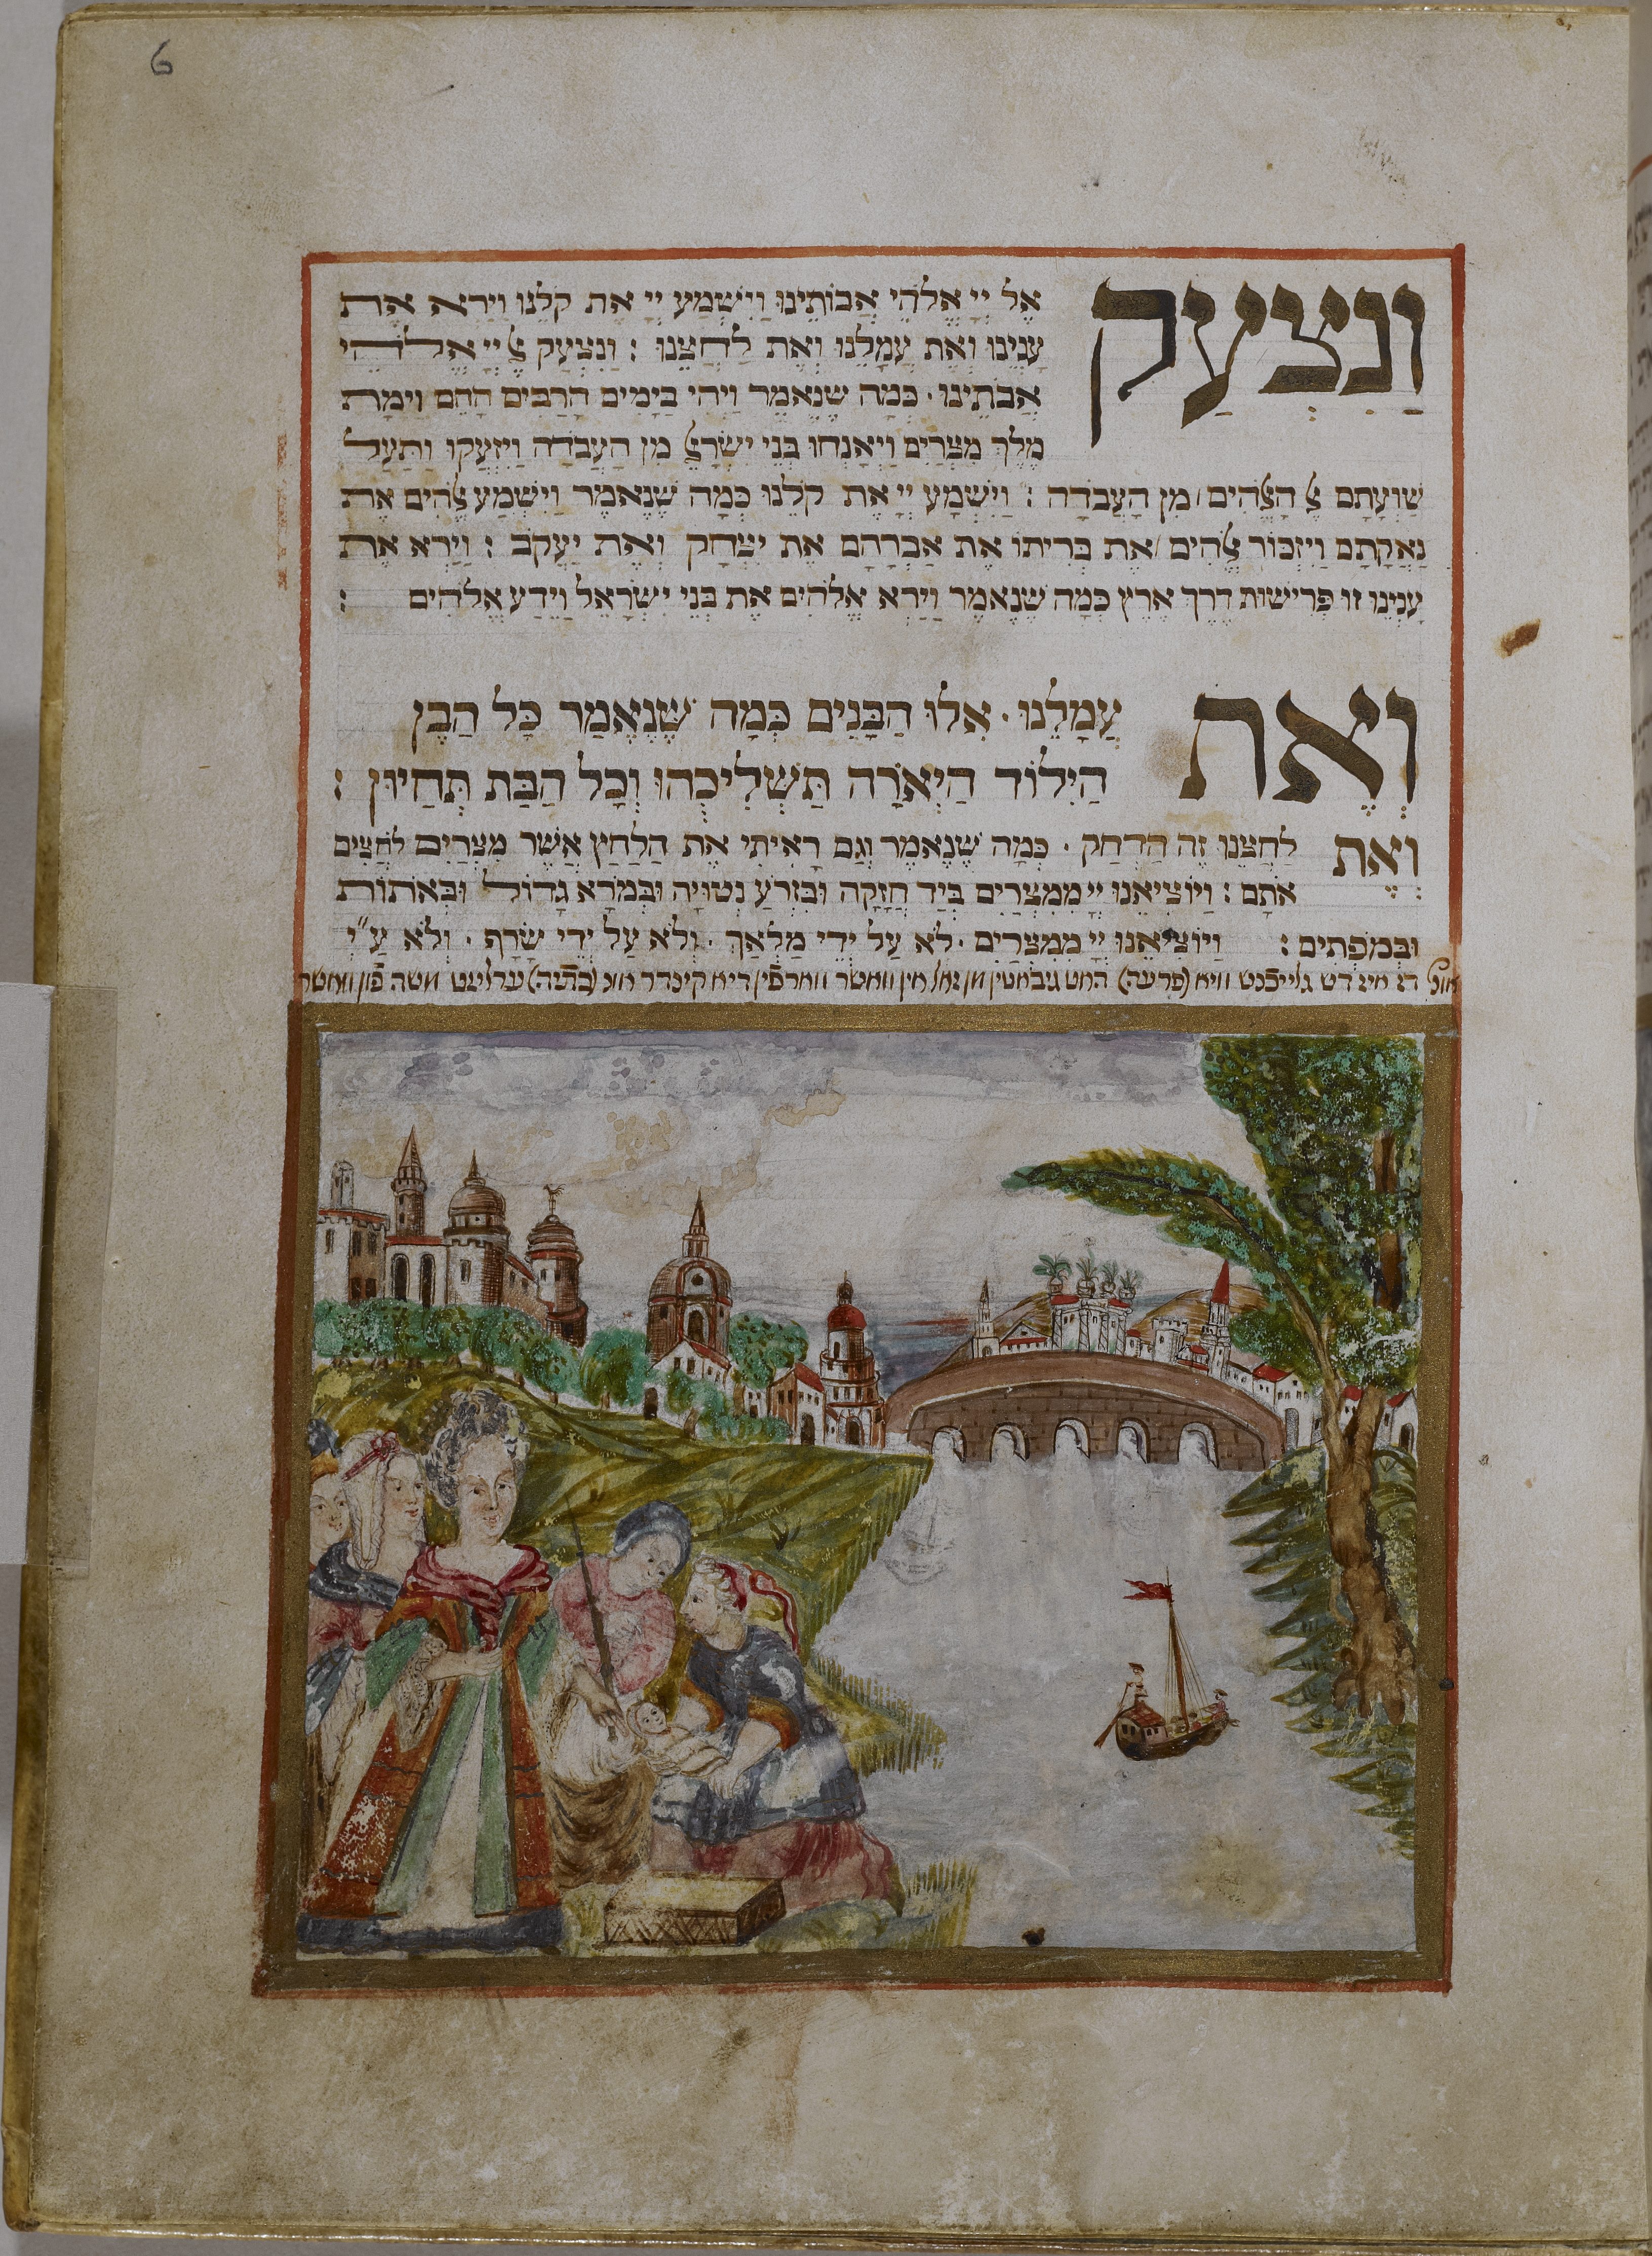 6
וַנִצְעַק אֶל יְיָ אֱלֹהֵי אֲבוֹתֵינוּ וַיִשְׁמַע יְיָ אֶת קֹלֵנוּ וַיַרְא אֶת
עָנְיֵנוּ וְאֶת עֲמָלֵנוּ וְאֶת לַחֲצֵנוּ : וַנִצְעַק אֶל יְיָ אֱלֹהֵי
אֲבֹתֵינוּ · כְּמָה שֶׁנֶאֱמַר וַיְהִי בַיָמִים הָרַבִּים הָהֵם וַיָמָת
מֶלֶךְ מִצְרַיִם וַיֵאָנְחוּ בְּנֵי יִשְׂרָאֵל מִן הָעֲבֹדָה וַיִזְעָקוּ וַתַּעַל
שַׁוְעָתָם אֶל הָאֱלֹהִים מִן הָעֲבֹדָה : וַיִשְׁמַע יְיָ אֶת קֹלֵנוּ כְּמָה שֶׁנֶאֱמַר וַיִשְׁמַע אֱלֹהִים אֶת
נַאֲקָתָם וַיִזְכּוֹר אֱלֹהִים אֶת בְּרִיתוֹ אֶת אַבְרָהָם אֶת יִצְחָק וְאֶת יַעֲקֹב : וַיַרְא אֶת
עָנְיֵנוּ זוֹ פְּרִישׁוּת דֶרֶךְ אֶרֶץ כְּמָה שֶׁנֶאֱמַר וַיַרְא אֱלֹהִים אֶת בְּנֵי יִשְׂרָאֵל וַיֵדַע אֱלֹהִים :
וְאֶת עֲמָלֵנוּ · אֵלוּ הַבָּנִים כְּמָה שֶׁנֶאֱמַר כָּל הַבֵּן
הַיִלוֹד הַיְאֹרָה תַּשְׁלִיכֻהוּ וְכָל הַבַּת תְּחַיוּן :
וְאֶת לַחֲצֵנוּ זֶה הַדְחַק · כְּמָה שֶׁנֶאֱמַר וְגַם רָאִיתִי אֶת הַלַחַץ אֲשֶׁר מִצְרַיִם לֹחֲצִים
אֹתָם : וַיוֹצִיאֵנוּ יְיָ מִמִצְרַיִם בְּיָד חֲזָקָה וּבִזְרֹעַ נְטוּיָה וּבְמֹרָא גָדוֹל וּבְאֹתוֹת
וּבְמֹפְתִים : וַיוֹצִיאֵנוּ יְיָ מִמִצְרַיִם · לֹא עַל יְדֵי מַלְאָךְ · וְלֹא עַל יְדֵי שָׂרָף · וְלֹא עַ״י
דז איז דש גלייכֿנש וויא (פרעה) האט גיבאטין מן זאל אין וואשר ווארפֿין דיא קינדר אונ (בתיה) ערליזט משה פֿון וואשר